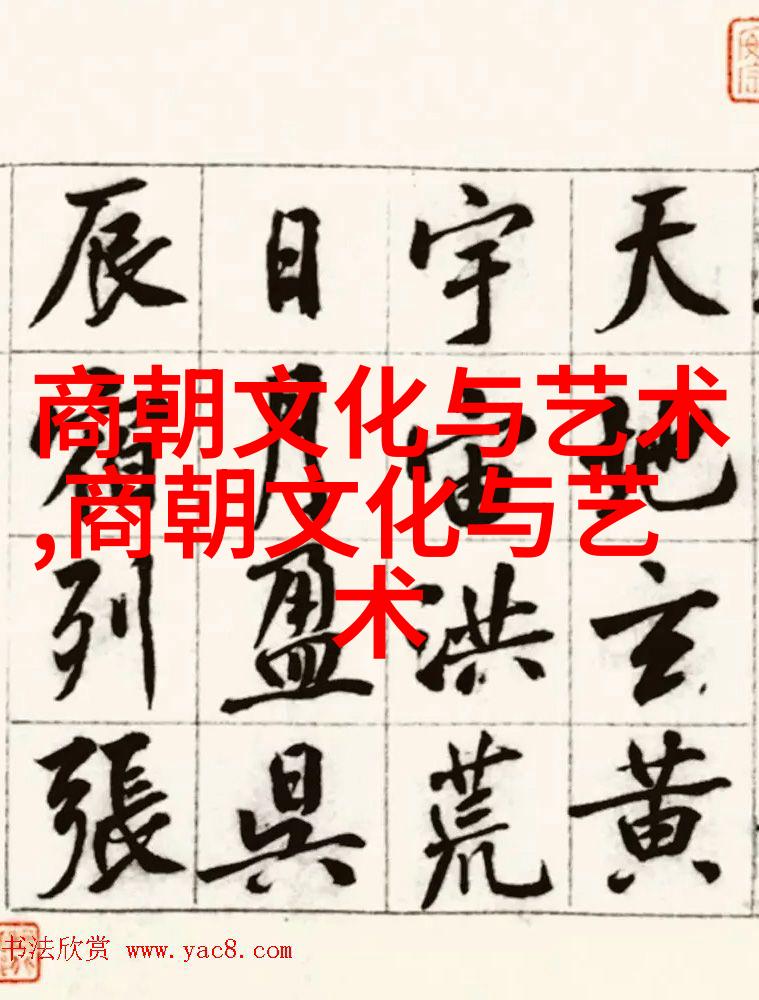 天地玄黄
宇宙洪荒
日月盈昃
辰宿列張
商朝文化与艺术
,商朝文化与艺
术
书法欣赏 www.yac8.com